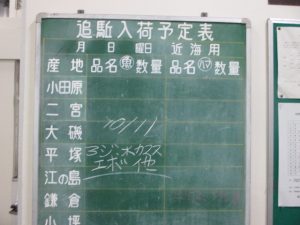 追駈入荷予定表
月 日 曜日 近海用
産地 品名 魚 数量 品名 ハマ 数量
小田原
二宮
大磯 10/11
平塚 3ジ:水カマス
江の島 エボ他
鎌倉
小坪